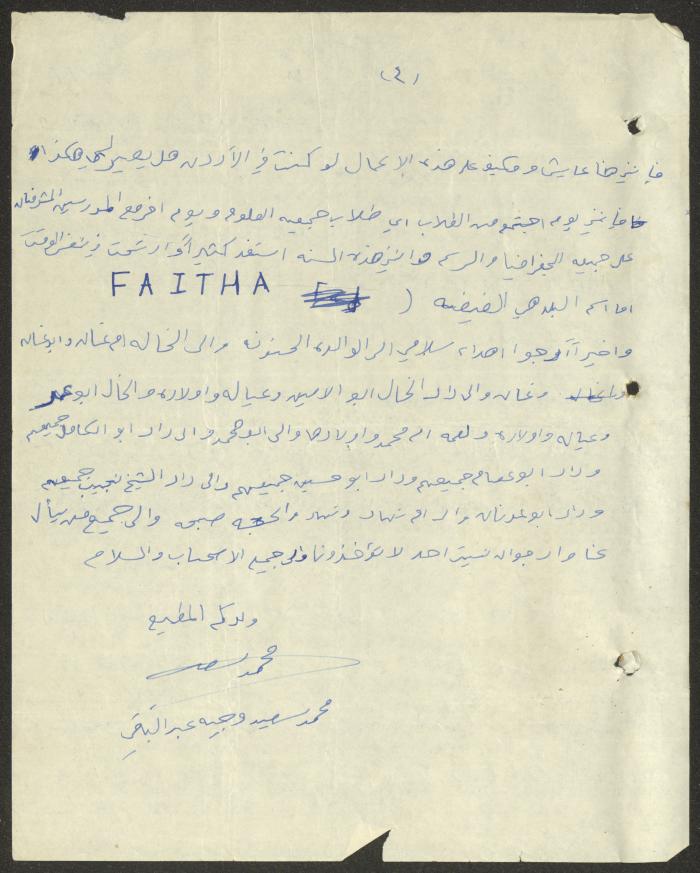 (٤)
فإنني هنا عايش ومكيف على هذه الاعمال لو كنت في الأردن هل يصير لي هكذا
فإنني يوم اجتمع من الطلاب اي طلاب جمعيه العلوم ويوم اخر مع المدرسين المشرفان
على جمعيه الجغرافيا والرسم هو انني هذه السنه استفد كثيراً وارتحت في نفس الوقت
اما اسم البلد هي الفيضه ( FAITHA
واخيراً أرجوا اهداء سلامي الى الوالده الحنونه والى الخاله ام غسان وابو غسان
وغسان والى دار الخال ابو الامين وعياله واولاده والخال ابو
وعياله واولاده والعمه ام محمد واولادها والى ابو محمد والى دار ابو الكامل جميعهم
ودار ابو عصام جميعهم ودار ابو حسين جميعهم والى دار الشيخ نجيب جميعهم
ودار ابو عدنان والى ام نهاد ونهاد والحجه صبحه والى جميع من يسأل
عنا وارجوا ان نسيت احد لا تؤاخذونا والى جميع الاصحاب والسلام
ولدكم المطيع
محمد سعيد
محمد سعيد وجيه عبد الباقي